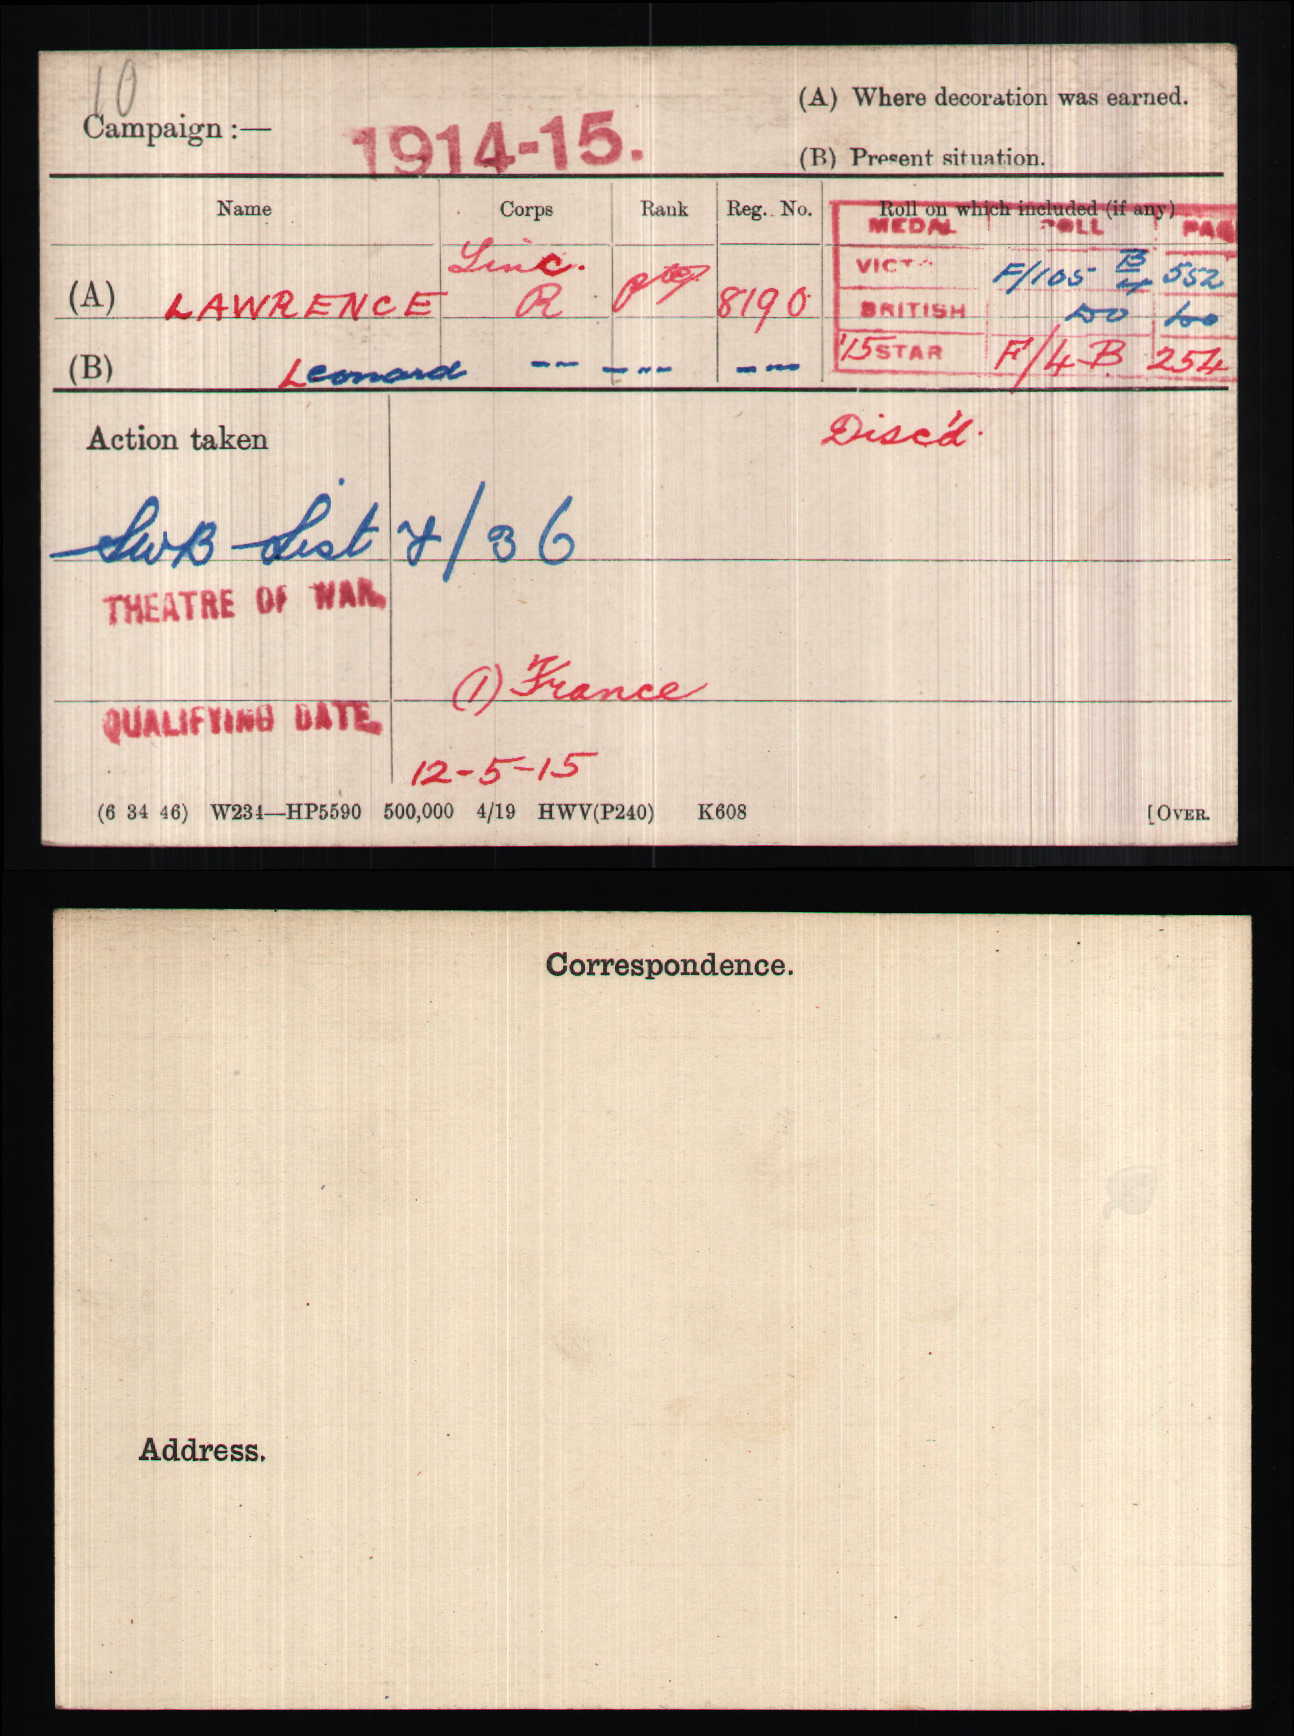 10
Campaign :— 1914-15.
(A) Where decoration was earned.
(B) Present situation.
Name Corps Rank Reg. No. Roll on which included (if any)
MEDAL ROLL PAG
(A) LAWRENCE Linc. R Pte 8190
VICT F/105 B/4 552
BRITISH do do
(B) Leonard -- -- --
'15 STAR F/4 B. 254
Action taken
Disc'd.
SWB List F/36
THEATRE OF WAR.
(1) France
QUALIFYING DATE.
12-5-15
(6 34 46) W234—HP5590 500,000 4/19 HWV(P240) K608 [OVER.
Correspondence.
Address.